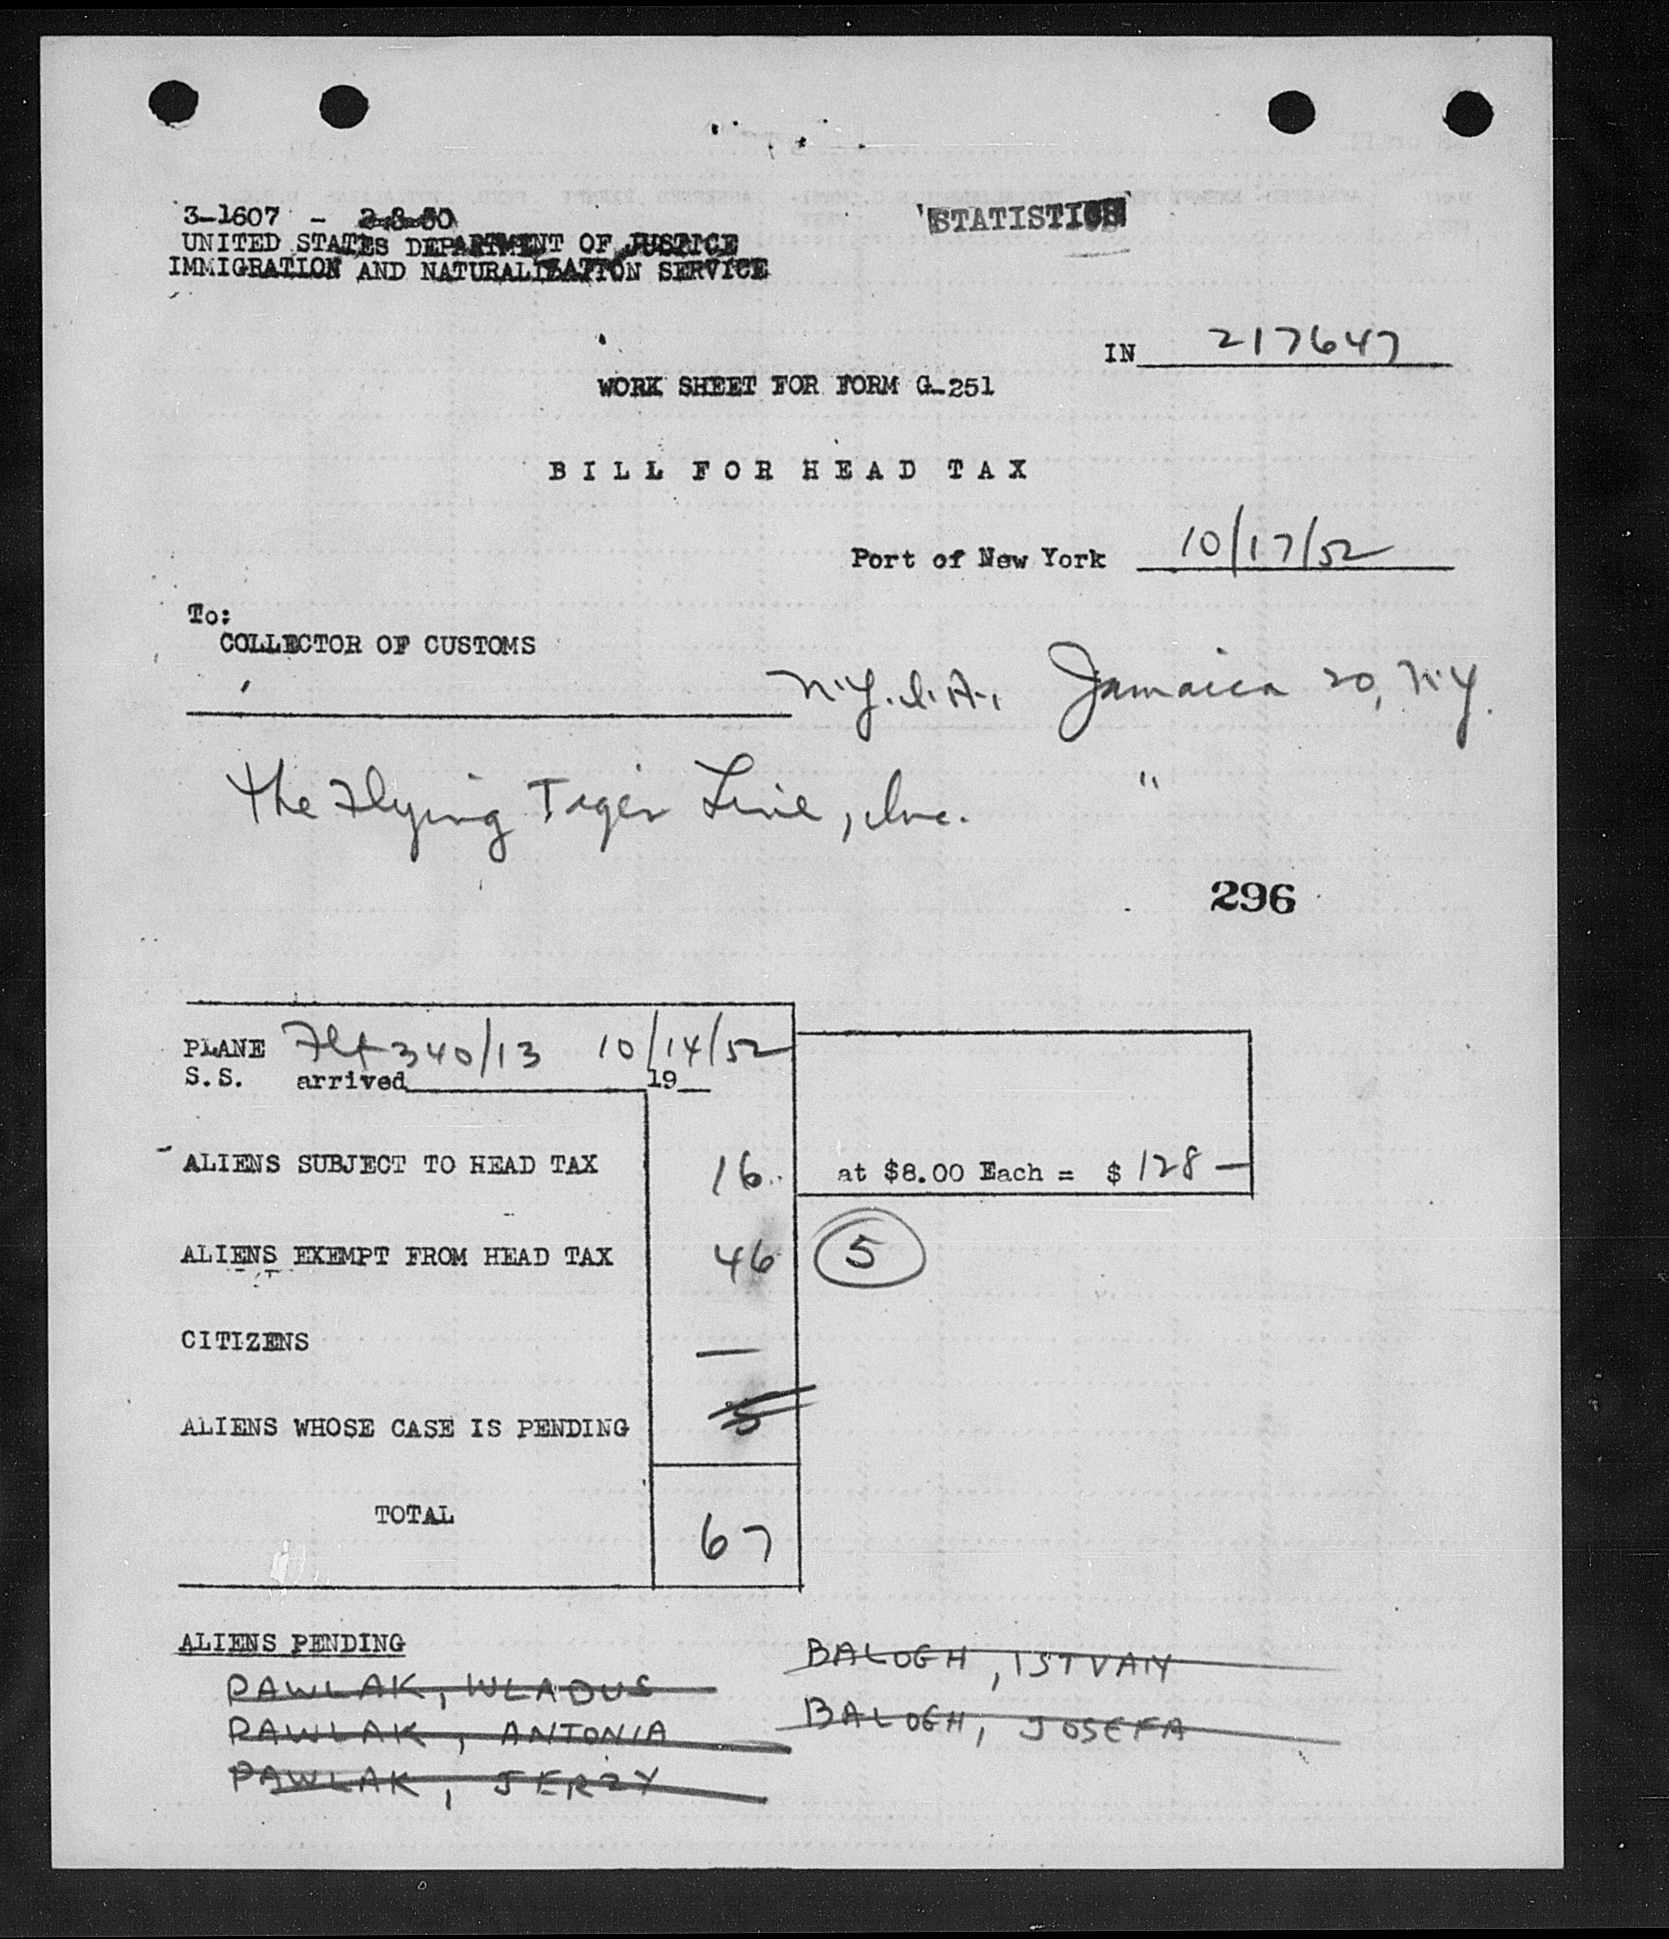 3-1607 - 2-8-50
STATISTICS
UNITED STATES DEPARTMENT OF JUSTICE
IMMIGRATION AND NATURALIZATION SERVICE
IN 217647
WORK SHEET FOR FORM G-251
BILL FOR HEAD TAX
Port of New York 10/17/52
To:
COLLECTOR OF CUSTOMS
N.Y.I.A., Jamaica 20, N.Y.
The Flying Tiger Line, Inc. "
296
PLANE Flt 340/13 10/14/52
S.S. arrived 19
ALIENS SUBJECT TO HEAD TAX 16 at $8.00 Each = $ 128 —
ALIENS EXEMPT FROM HEAD TAX 46 5
CITIZENS —
ALIENS WHOSE CASE IS PENDING 5
TOTAL 67
ALIENS PENDING
PAWLAK, WLADUS
PAWLAK, ANTONIA
PAWLAK, JERZY
BALOGH, ISTVAN
BALOGH, JOSEFA